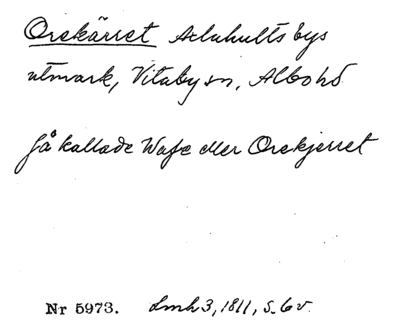 Orekärret Aluhults bys
utmark, Vitaby sn, Albo hd
så kallade Wase eller Orekjerret
Nr 5973. Lmh 3, 1811, s. 6 v.